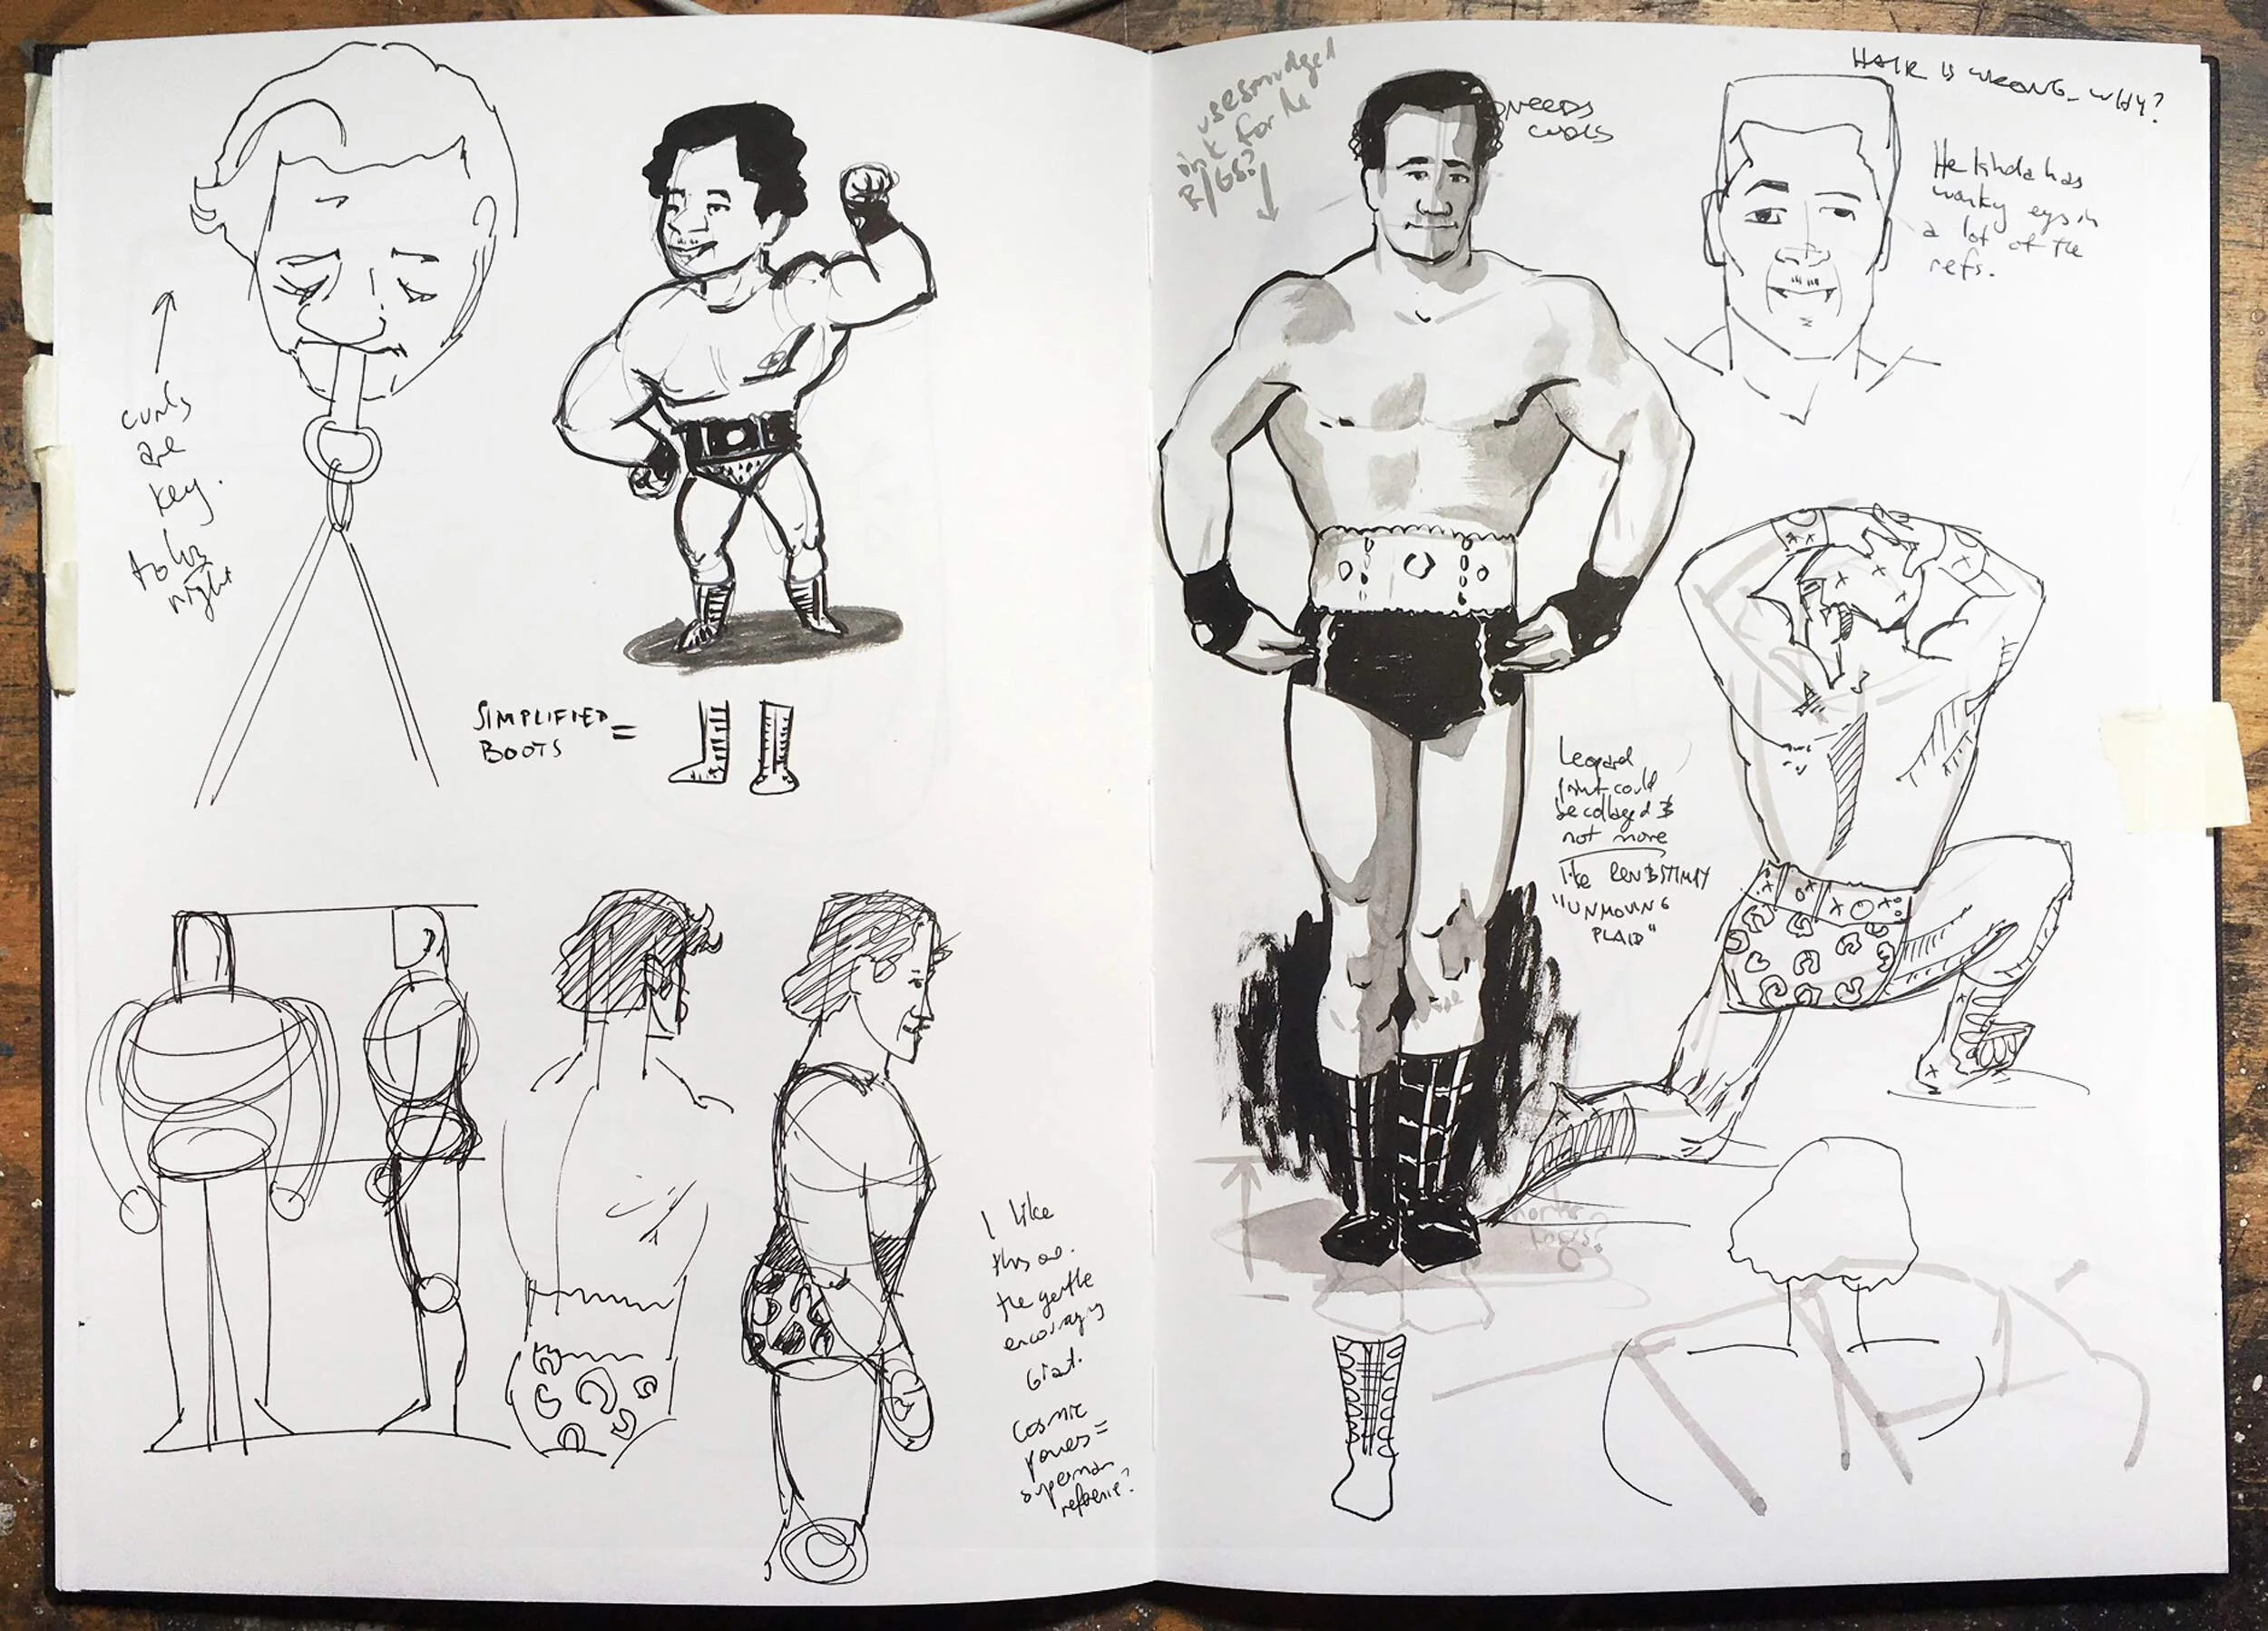 curls
are
key.
to his
right
SIMPLIFIED =
BOOTS
I like
this one.
the gentle
encouraging
Giant.
Cosmic
powers =
superman
reference?
use smudged
ink for the
B/GS?
NEEDS
CURLS
HAIR IS WRONG - WHY?
He kinda has
wonky eyes in
a lot of the
refs.
Leopard
print could
be collaged &
not move
like REN & STIMPY
"UNMOVING
PLAID"
shorter